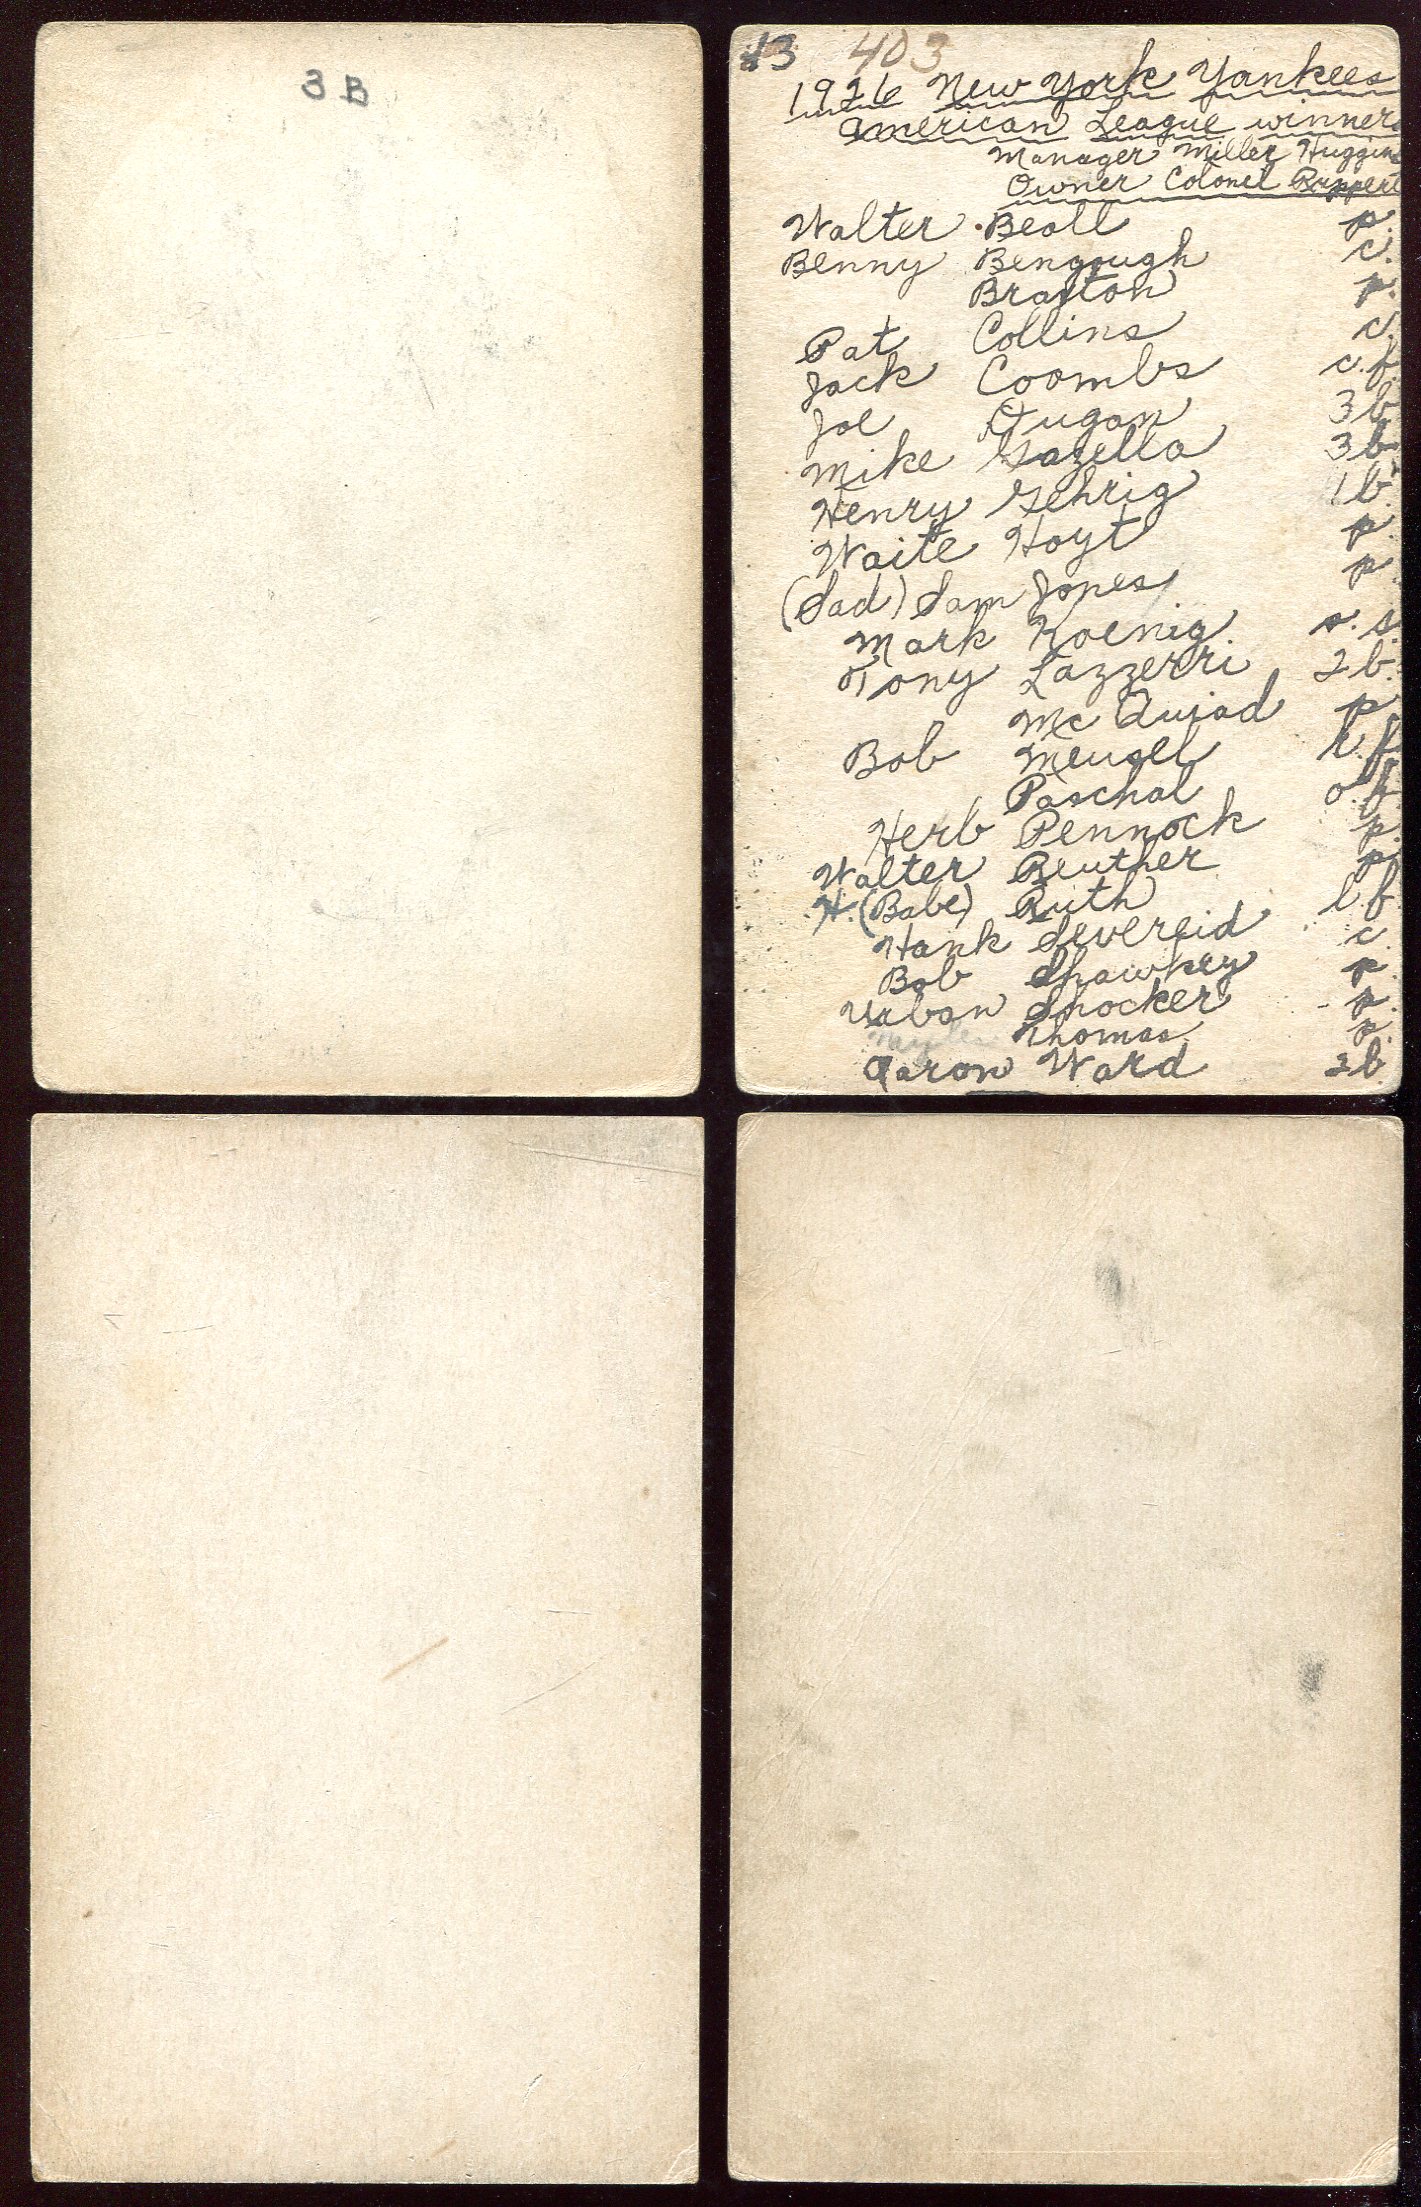 3 B
13 403
1926 New York Yankees
American League winners
Manager Miller Huggins
Owner Colonel Ruppert
Walter Beall p.
Benny Bengough c.
Braxton p.
Pat Collins c.
Jack Coombs c.f.
Joe Dugan 3b
Mike Gazella 3b
Henry Gehrig 1b.
Waite Hoyt p.
(Sad) Sam Jones p.
Mark Koenig s.s.
Tony Lazzerri 2b.
Mc Quiad p.
Bob Meusel l.f.
Paschal o.f.
Herb Pennock p.
Walter Reuther p.
H. (Babe) Ruth l.f.
Hank Severeid c.
Bob Shawkey p.
Urban Shocker p.
Myles Thomas p.
Aaron Ward 2b.